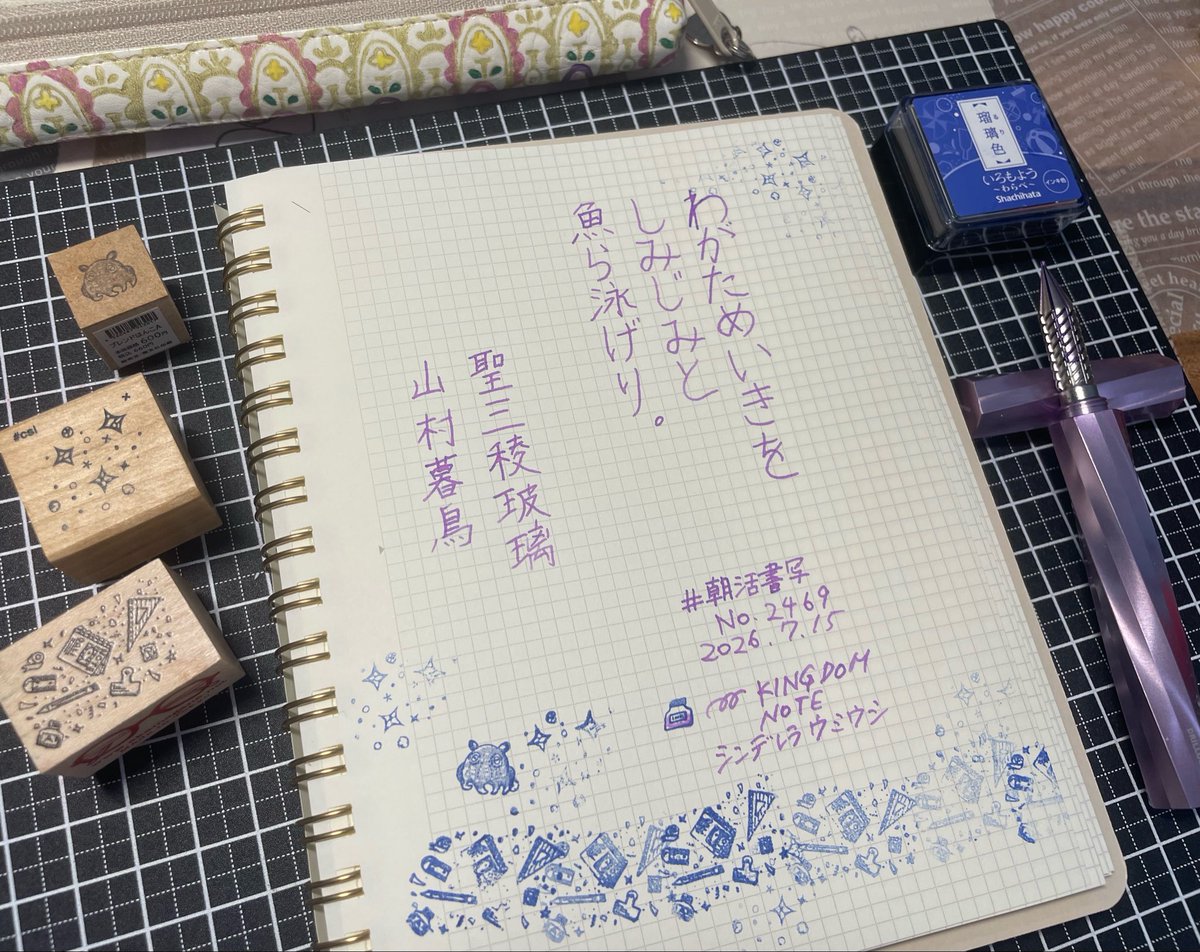 わがためいきを
しみじみと
魚ら泳げり。
聖三稜玻璃
山村暮鳥
#朝活書写
No. 2469
2026. 7. 15
KINGDOM
NOTE
シンデレラウミウシ
【瑠璃色】
るり
いろもよう
~わらべ~
インキ色
Shachihata
#csl
ブレンドはんこA
600円